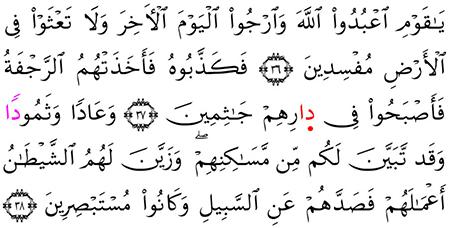 يَـٰقَوْمِ ٱعْبُدُوا۟ ٱللَّهَ وَٱرْجُوا۟ ٱلْيَوْمَ ٱلْـَٔاخِرَ وَلَا تَعْثَوْا۟ فِى
ٱلْأَرْضِ مُفْسِدِينَ ٣٦ فَكَذَّبُوهُ فَأَخَذَتْهُمُ ٱلرَّجْفَةُ
فَأَصْبَحُوا۟ فِى دَارِهِمْ جَـٰثِمِينَ ٣٧ وَعَادًا وَثَمُودًا
وَقَد تَّبَيَّنَ لَكُم مِّن مَّسَـٰكِنِهِمْ ۖ وَزَيَّنَ لَهُمُ ٱلشَّيْطَـٰنُ
أَعْمَـٰلَهُمْ فَصَدَّهُمْ عَنِ ٱلسَّبِيلِ وَكَانُوا۟ مُسْتَبْصِرِينَ ٣٨